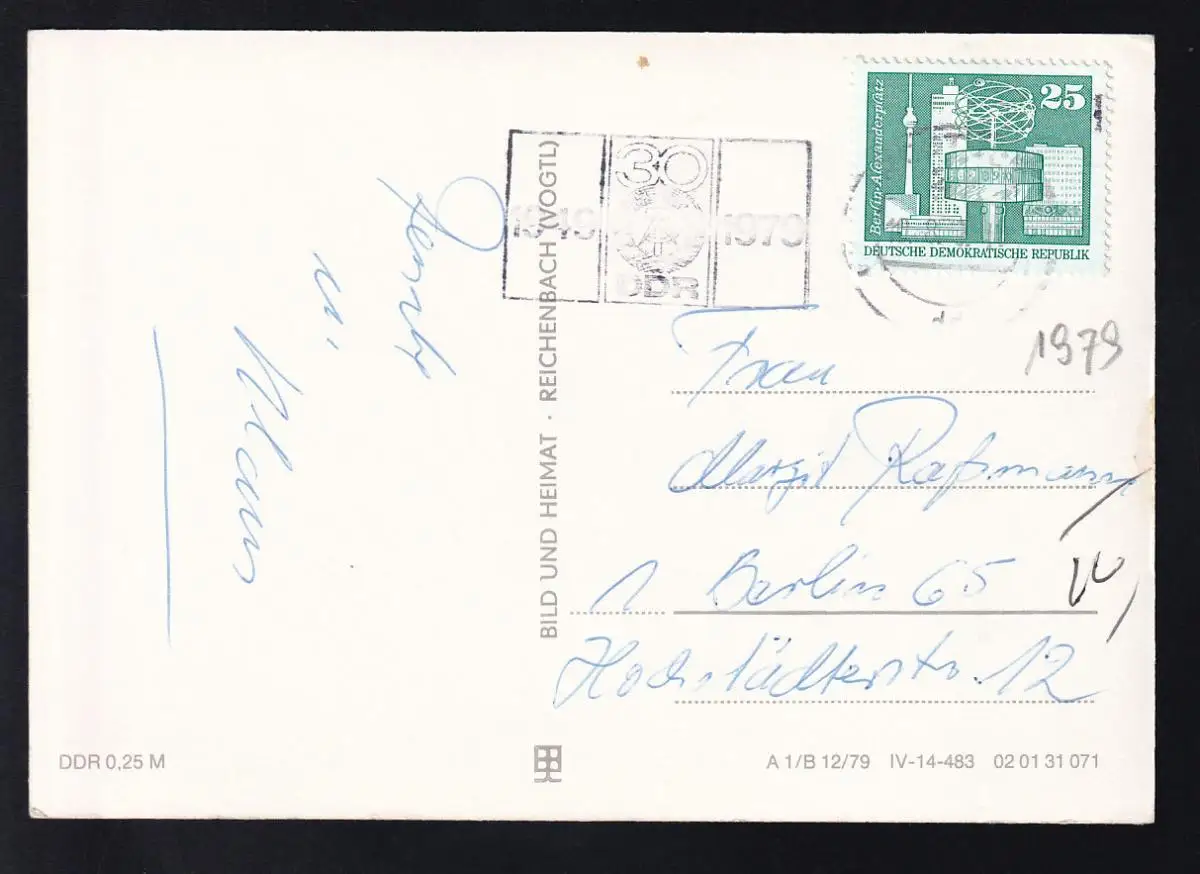 Berlin-Alexanderplatz
25
DEUTSCHE DEMOKRATISCHE REPUBLIK
1949 30 1979
DDR
1979
u.
Klaus
BILD UND HEIMAT · REICHENBACH (VOGTL)
Frau
Margit Raßmann
1 Berlin 65
W
Hochstädterstr. 12
DDR 0,25 M
A 1/B 12/79 IV-14-483 02 01 31 071